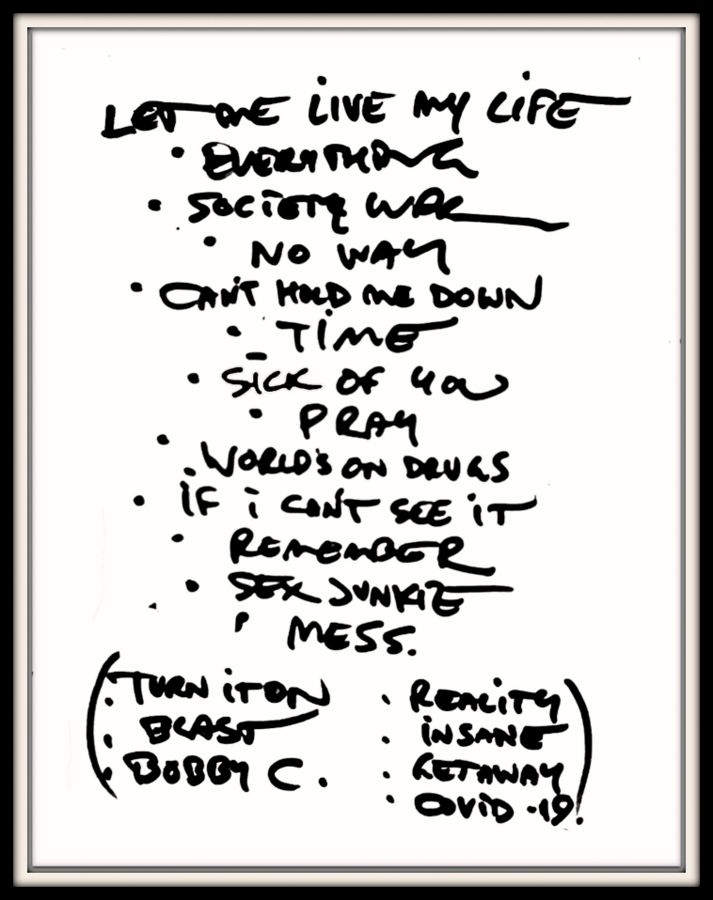 LET ME LIVE MY LIFE
• EVERYTHING
• SOCIETY WAR
• NO WAY
• CAN'T HOLD ME DOWN
• TIME
• SICK OF YOU
• PRAY
• WORLD'S ON DRUGS
• IF I CAN'T SEE IT
• REMEMBER
• SEX JUNKIE
• MESS.
(• TURN IT ON
• BLAST
• BOBBY C.
• REALITY
• INSANE
• GETAWAY
• COVID-19.)